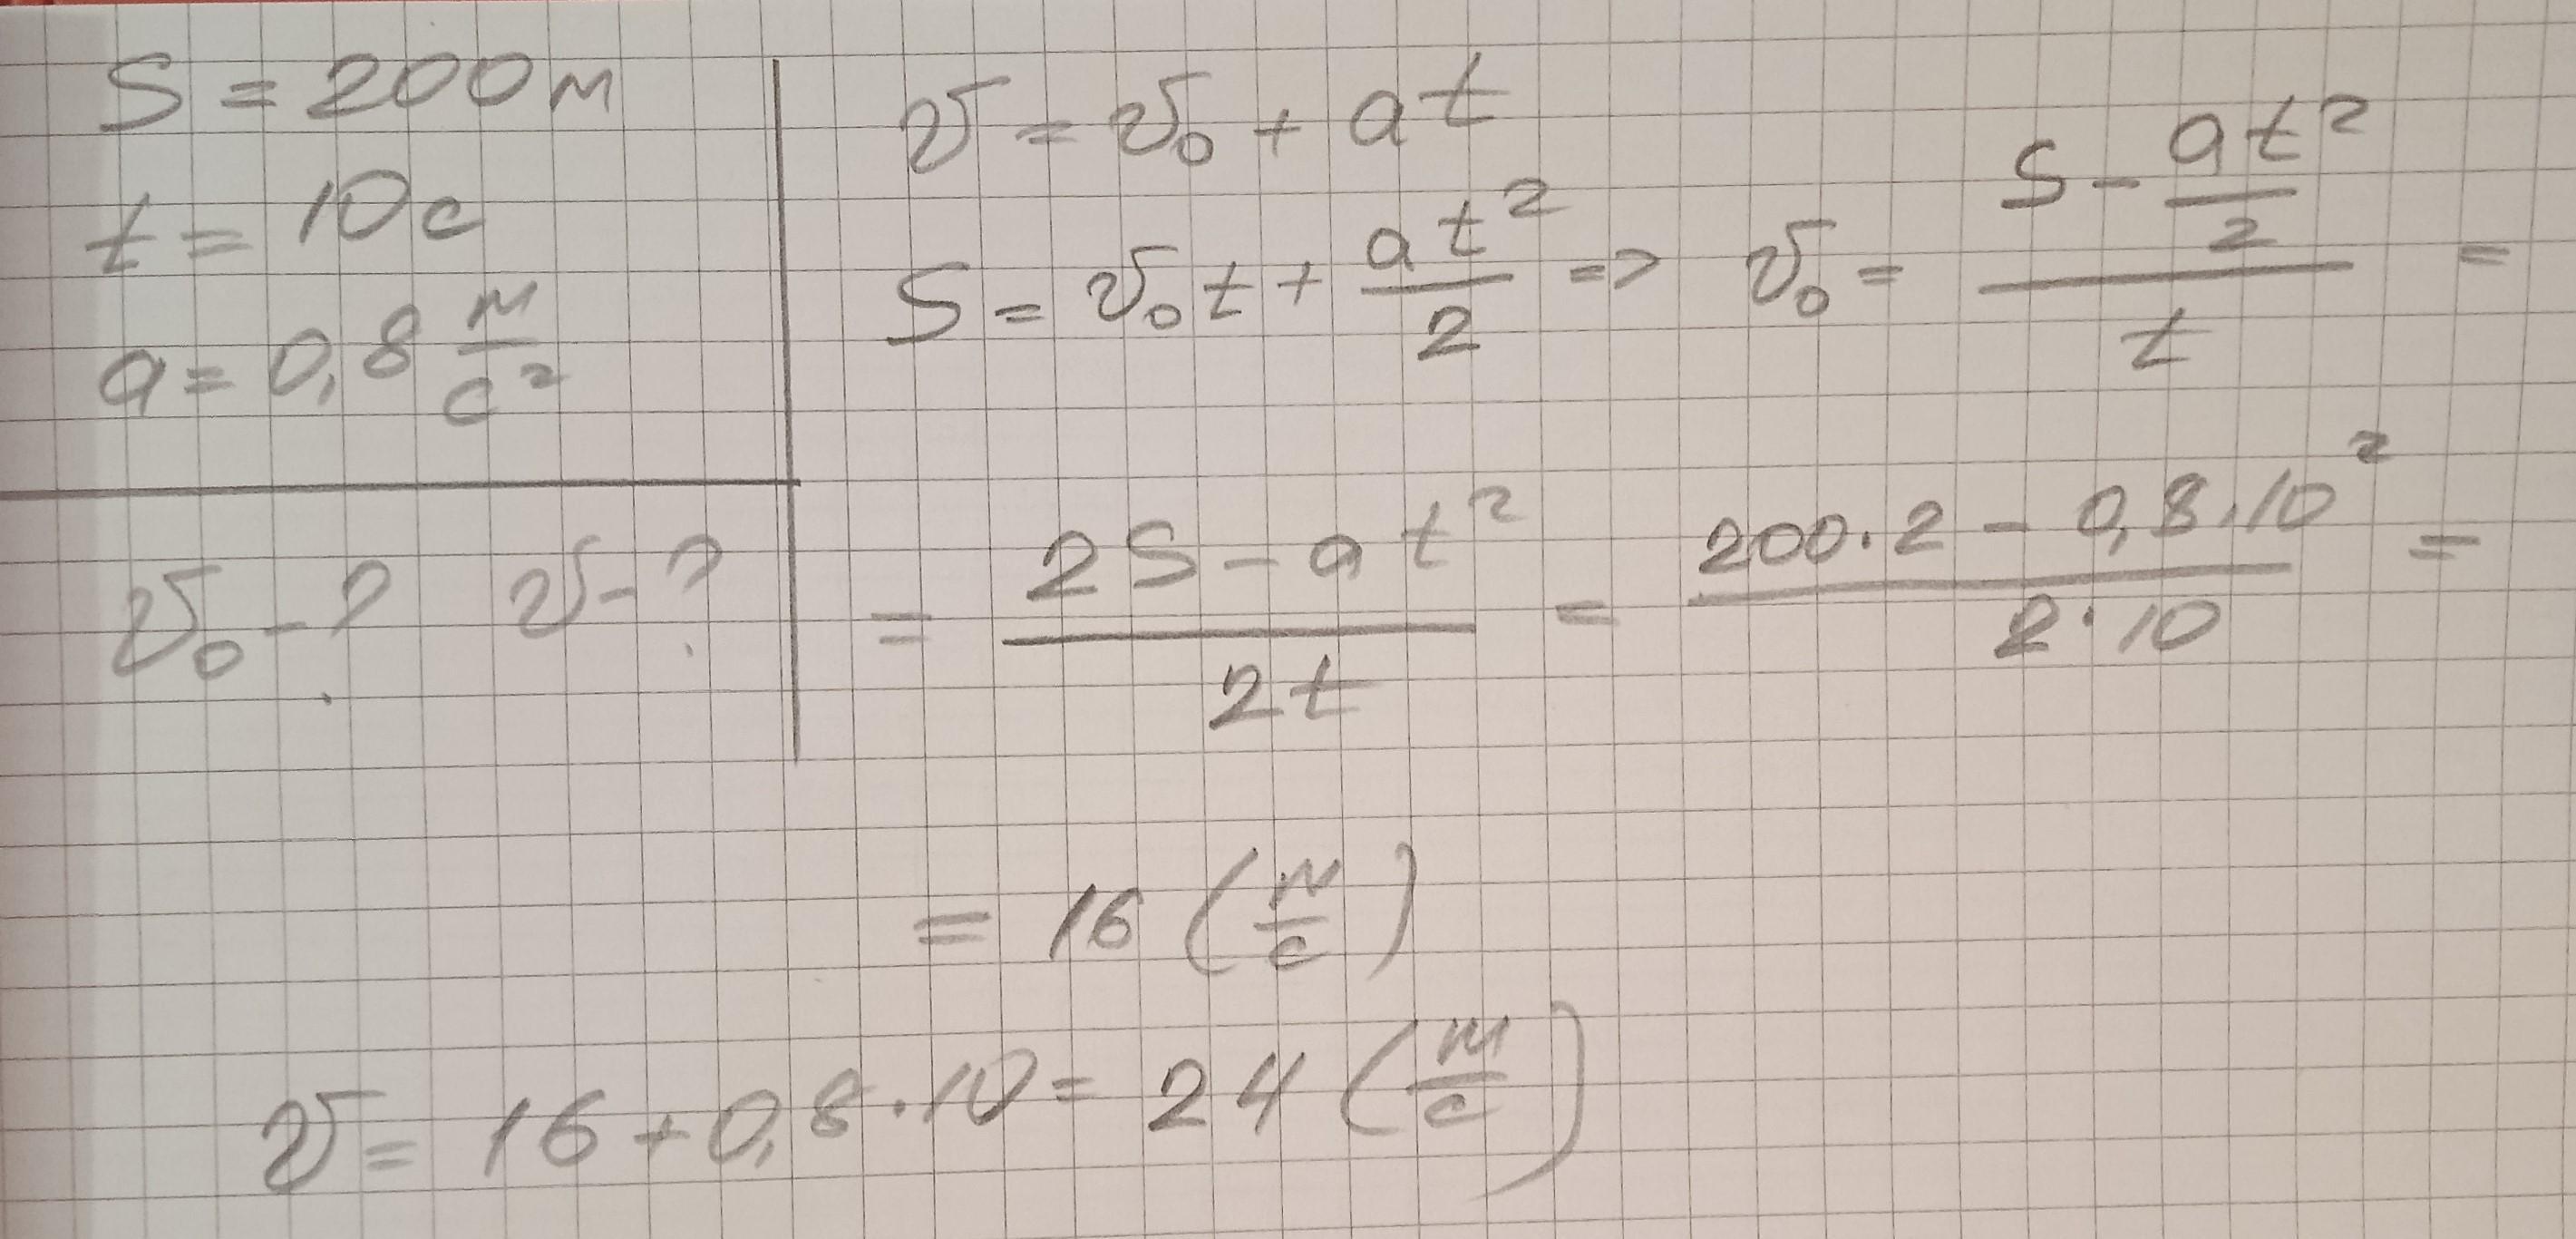 S = 200 м
t = 10 с
a = 0,8 м/с²
υ₀ - ? υ - ?
υ = υ₀ + at
S = υ₀t + at²/2 => υ₀ = (S - at²/2)/t =
= (2S - at²)/2t = (200·2 - 0,8·10²)/(2·10) =
= 16 (м/с)
υ = 16 + 0,8·10 = 24 (м/с)